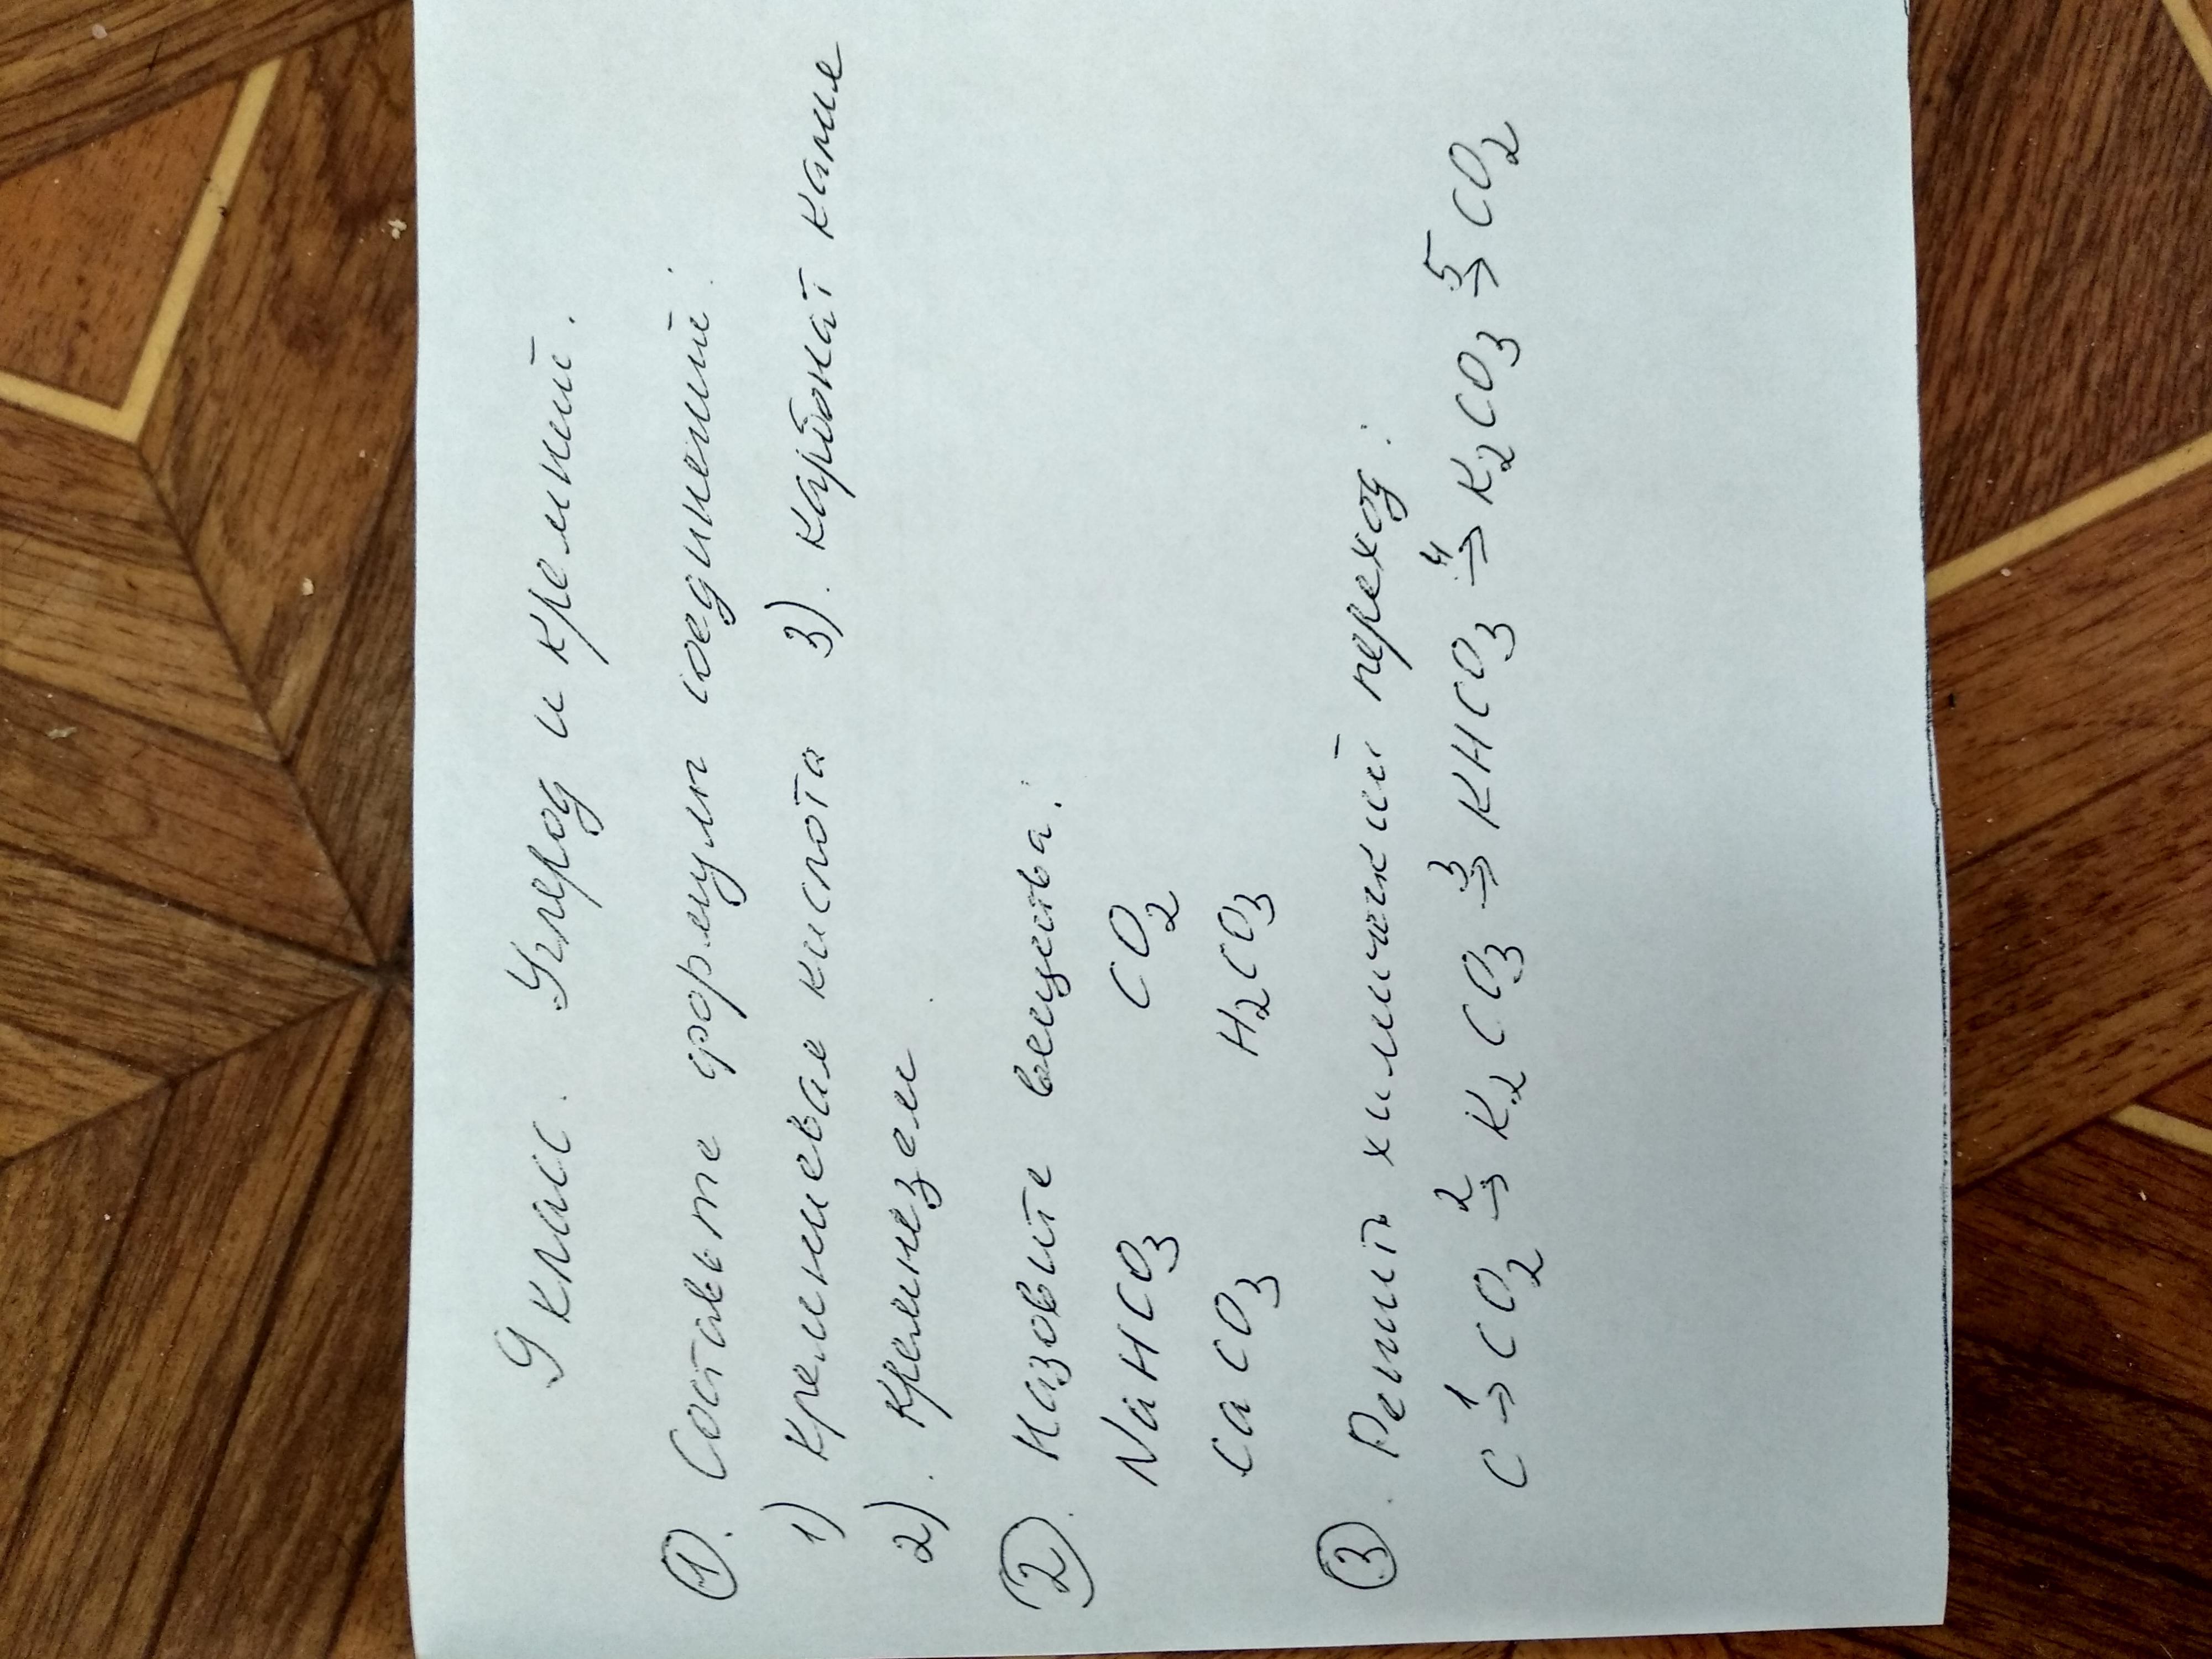 9 класс. Углерод и кремний.
①. Составьте формулы соединений:
1) Кремниевая кислота 3). карбонат калия
2). Кремнезем
②. Назовите вещества:
NaHCO₃ CO₂
CaCO₃ H₂CO₃
③. Решить химический переход:
C →¹ CO₂ →² K₂CO₃ →³ KHCO₃ →⁴ K₂CO₃ →⁵ CO₂